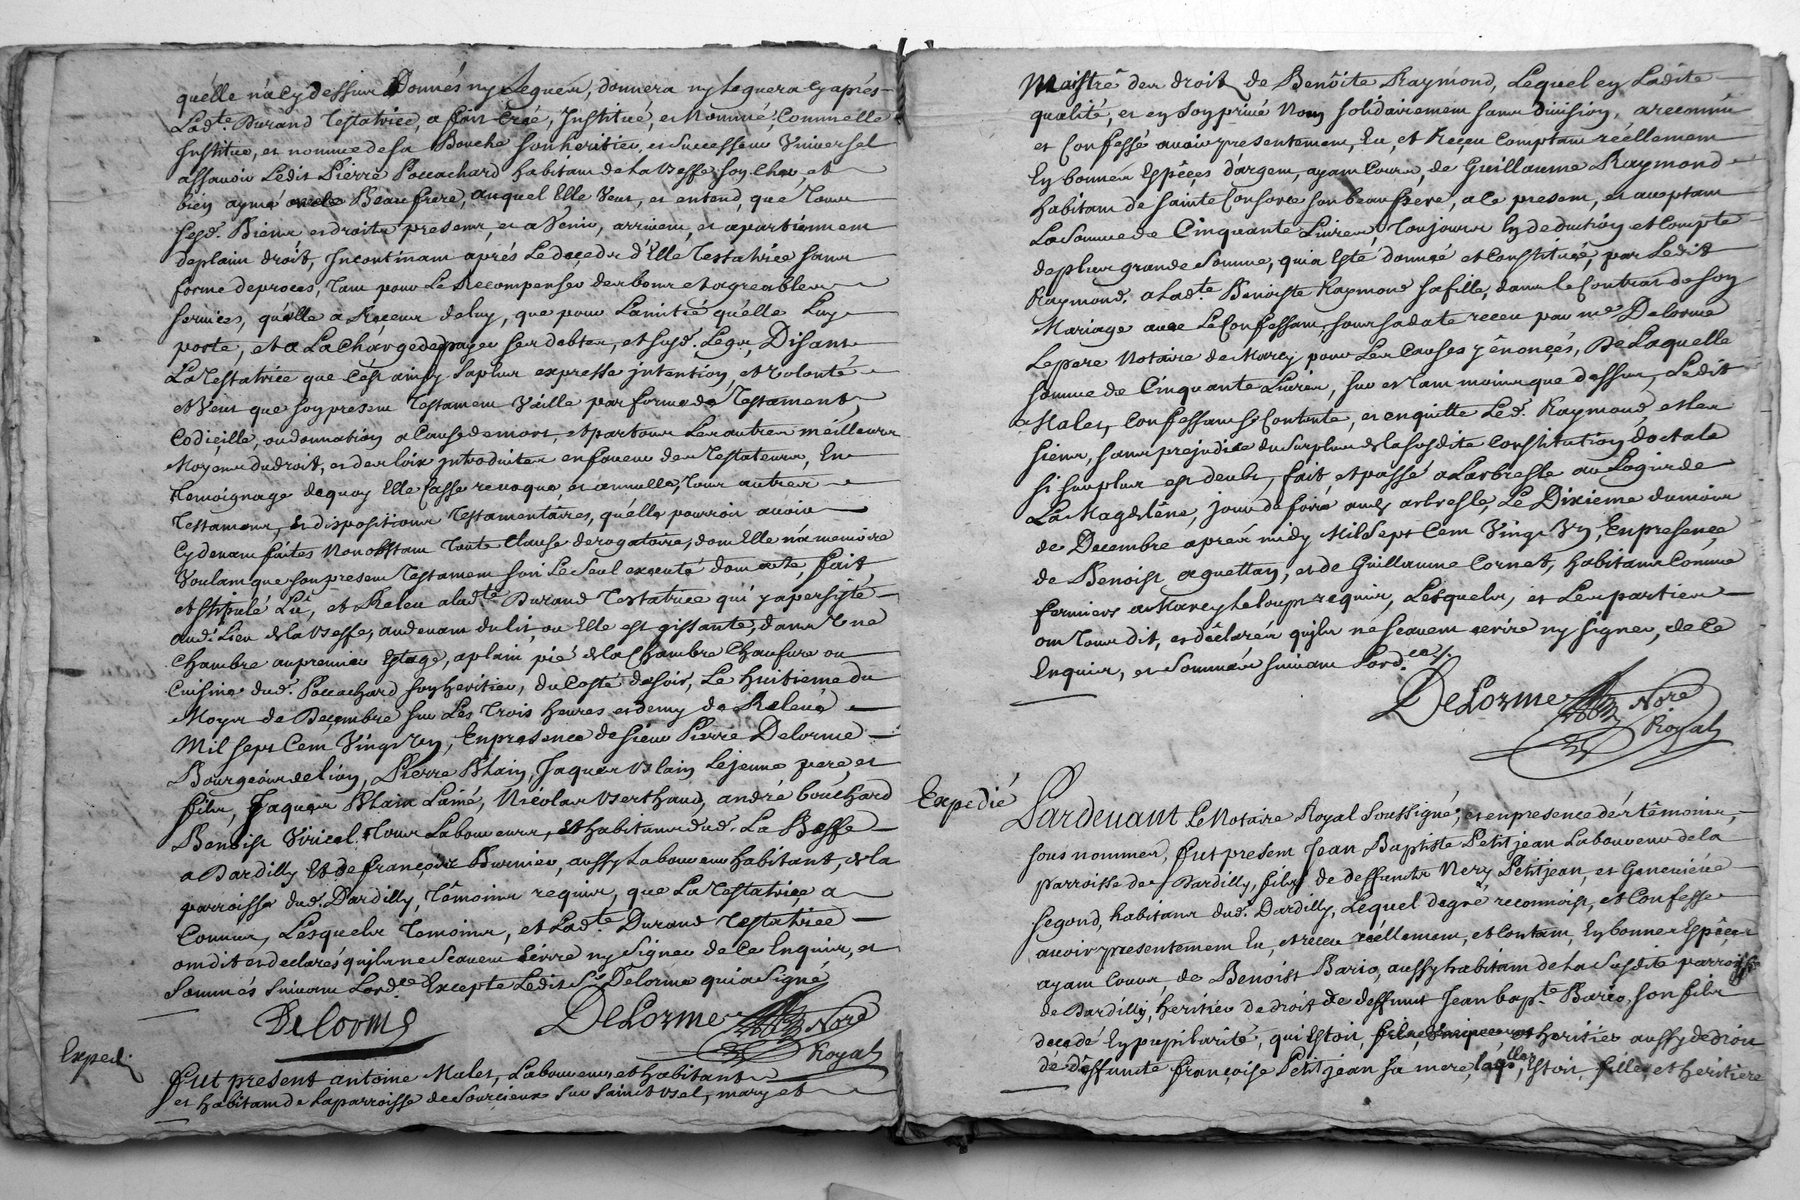 quélle n'a cy dessus Donnés ny Leguéz, donnera ny Leguera cy aprés
Lad.te Durand Testatrice, a fait Créé, Institué, et Nommé, Comme elle
Institue, et nomme de sa Bouche son heritier, et Successeur Universel
assavoir Ledit Pierre Poccachard habitant de La Beffe, son cher, et
bien aymé Beaufrere, auquel Elle veut, et entend, que Tous
sesd. Biens et droits presens, et a Venir, arrivent, et apartiennent
de plain droit, Incontinant aprés Le deceds d'Elle Testatrice sans
forme de proces, tant pour Le Recompenser des bons et agreables
services, quélle a Reçeus de luy, que pour L'amitié quélle Luy
porte, et a La Charge de payer ses debtes, et susd. Legs, Disant
La Testatrice que C'est ainsy sa plus expresse intention, et volonté
et veut que son present Testament Vaille par forme de Testament,
Codicille, ou donnation a Cause de mort, et par tous Les autres meilleurs
Moyens du droit, et des loix introduites en faveur des Testateurs, En
Temoignage de quoy Elle Casse revoque, et annulle, Tous autres
Testamens, et dispositions Testamentaires, quélle pourroit avoir
Cy devant faites Nonobstant Toute Clause derogatoire, dont Elle n'a memoire
Voulant que son present Testament soit Le Seul executé dont acte, fait,
et stipulé Lû, et Releu a lad.te Durand Testatrice qui y a persisté
aud. Lieu de la Beffe, au devant du lit, ou Elle est gissante, dans Une
Chambre au premier Estage, a plain pié de la Chambre Chaufure ou
Cuisine dud. Poccachard son heritier, du Costé de soir, Le huitieme du
Moys de Decembre sur Les Trois heures et demy de Relevé
Mil sept Cent Vingt Un, En presence de sieur Pierre Delorme
Bourgeois de lion, Pierre Blain, Jaques Blain Le jeune pere, et
fils, Jaques Blain L'ainé, Nicolas Berthaud, andré bouchard
Benoist Viricel, Tous Laboureurs, et habitans dud. La Beffe
a Dardilly Et de françois Burnier, aussy Laboureur habitant, de la
parroisse dud. Dardilly, Témoins requis, que La Testatrice a
Connus, Lesquels Temoins, et Lad.te Durand Testatrice
ont dit et declarés quils ne Scavent écrire ny Signer de Ce Enquis, et
Sommés suivant Lord.ce Excepté Ledit Sr Delorme qui a Signé
Delorme
DeLorme Nore
Royal
Exped.
fut present antoine Males, Laboureur et habitant
et habitant de La parroisse de Sourcieux sur Saint bel, mary et
Maistre des droits de Benoîte Raymond, Lequel en Ladite
qualité, et en son privé Nom solidairement sans division, a reconnu
et Confessé avoir presentement, Eu, et Receu Comptant réellement
En bonnes Espêces d'argent, ayant Cours, de Guillaume Raymond
habitant de Sainte Consorce son beau frere, a ce present, et acceptant
La Somme de Cinquante Livres, Toujours En deduction, et Compte
de plus grande Somme, qui a Esté donnée et Constituée par Ledit
Raymond a Lad.te Benoiste Raymond sa fille, dans le Contrat de son
Mariage avec Le Confessant, sous sa date receu par me Delorme
Le pere Notaire de Marcy pour Les Causes y énoncés, De Laquelle
Somme de Cinquante Livres, sur et tant moins que dessus, Ledit
Males, Confessant se Contente, et en quitte Led. Raymond, et les
siens, sans prejudice du Surplus de la Susdite Constitution, dotale
si son plus est deubt, fait et passé a Larbresle au Logis de
La Magdelêne, jour de foire aud. arbresle, Le Dixieme du mois
de Decembre aprés midy Mil Sept Cent Vingt Un, En presence
de Benoist aguettan, et de Guillaume Cornet, habitans Comme
fermiers a Marcy Le loup requis, Lesquels, et Les parties
ont Tous dit, et déclarés quils ne Scavent ecrire ny Signer, de Ce
Enquis, et Sommés suivant Lord.ce
DeLorme Nore
Royal
Expedié
Pardevant Le Notaire Royal Soussigné, et en presence dés têmoins,
sous nommés, fut present Jean Baptiste Petitjean Laboureur de la
parroisse de Dardilly, fils de deffunts Nery Petitjean, et Genevieve
Segond, habitans dud. Dardilly, Lequel de gré reconnoist, et Confesse
avoir presentement Eu, et receu réellement, et Contant, En bonnes Espêces
ayant Cours, de Benoist Bario, aussy habitant de La Susdite parroisse
de Dardilly, heritier de droit de deffunt Jean bap.te Bario, son fils
decedé En pupilarité, qui Estoit, heritier aussy de droit
de déffunte françoise Petitjean sa mere, laquelle Estoit, fille, et heritiere